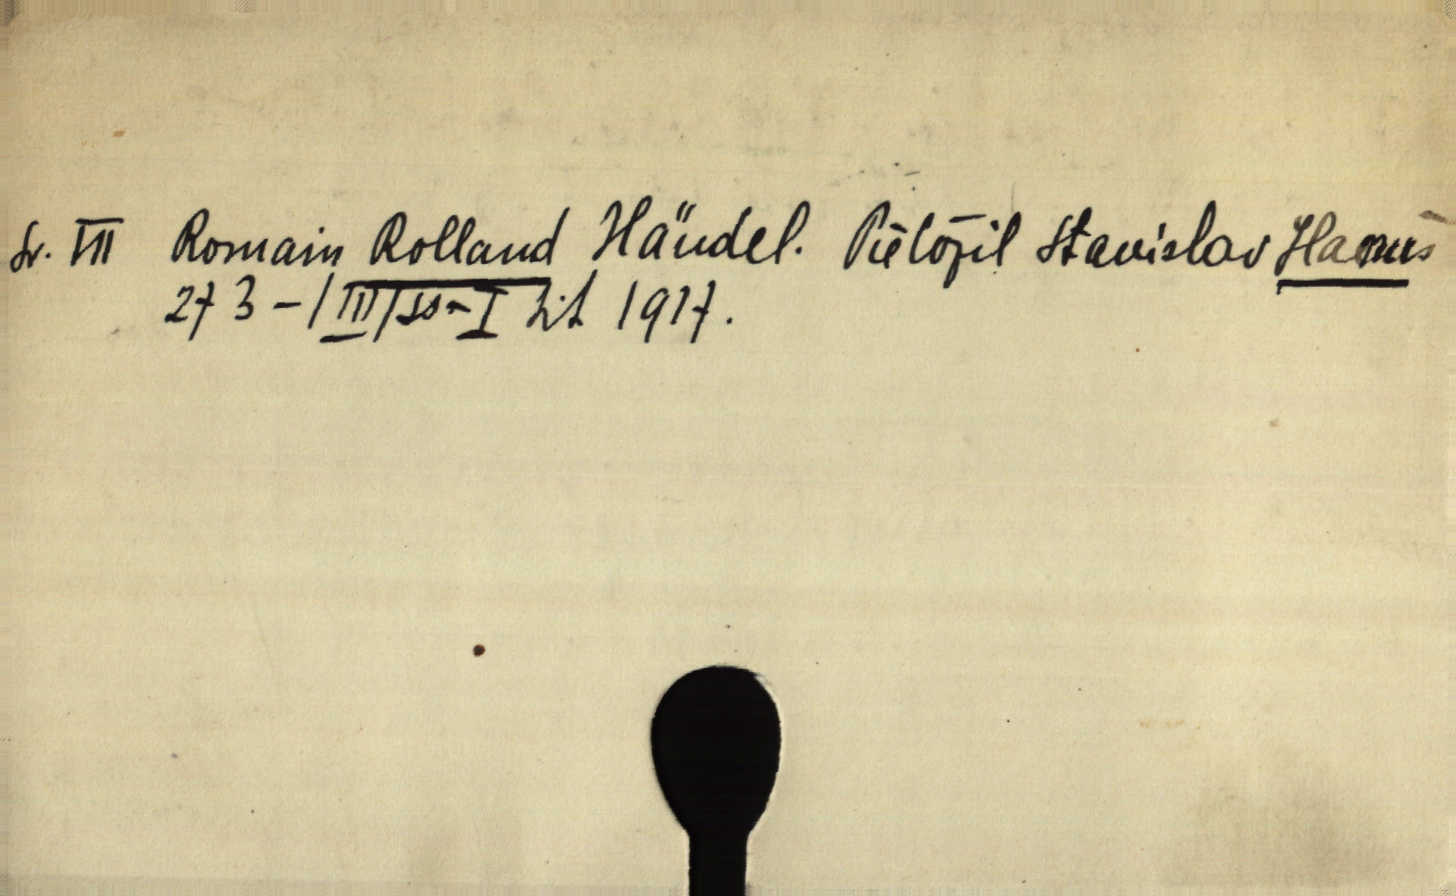 Sv. VII Romain Rolland Händel. Přeložil Stanislav Hanuš
273 - / III / ss - I Lit 1917.